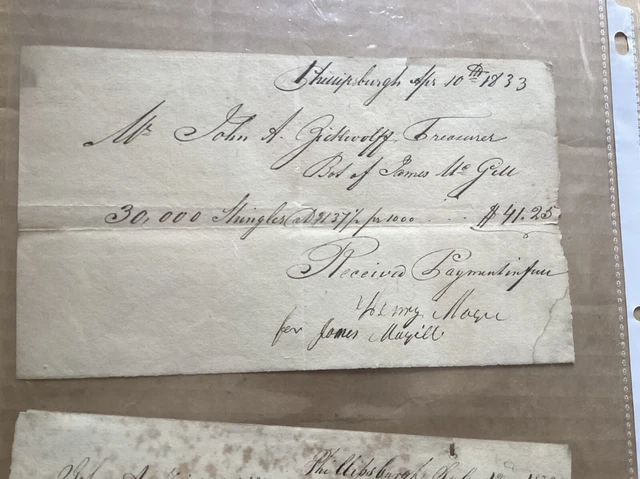 Phillipsburgh Apr 10th 1833
Mr John A. Zickwolff Treasurer
Bot of James Mc Gill
30,000 Shingles @ $1.37½ pr 1000 .... $41.25
Received Payment in full
Henry
for James Magill
Phillipsburgh